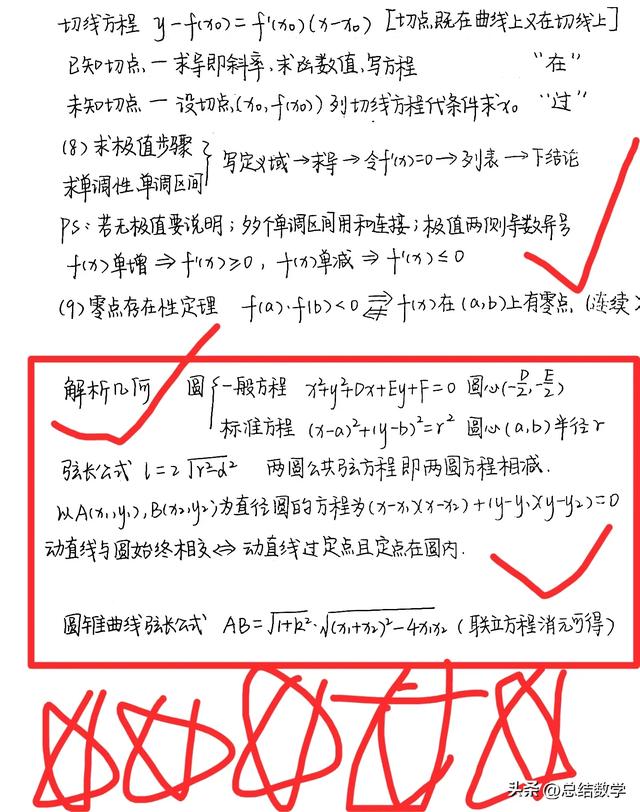 切线方程 y-f(x₀)=f'(x₀)(x-x₀) [切点既在曲线上又在切线上]
已知切点 — 求导即斜率,求函数值,写方程 “在”
未知切点 — 设切点(x₀,f(x₀))列切线方程代条件求x₀ “过”
(8) 求极值步骤
求单调性,单调区间 } 写定义域→求导→令f'(x)=0→列表→下结论
PS:若无极值要说明;多个单调区间用和连接;极值两侧导数异号
f(x)单增⇒f'(x)≥0, f(x)单减⇒f'(x)≤0
(9) 零点存在性定理 f(a)·f(b)<0 ⇄ f(x)在(a,b)上有零点 (连续)
解析几何 圆 { 一般方程 x²+y²+Dx+Ey+F=0 圆心(-D/2,-E/2)
标准方程 (x-a)²+(y-b)²=r² 圆心(a,b)半径r
弦长公式 l=2√(r²-d²) 两圆公共弦方程即两圆方程相减.
以A(x₁,y₁),B(x₂,y₂)为直径圆的方程为(x-x₁)(x-x₂)+(y-y₁)(y-y₂)=0
动直线与圆始终相交⇔动直线过定点且定点在圆内.
圆锥曲线弦长公式 AB=√(1+k²)·√((x₁+x₂)²-4x₁x₂) (联立方程消元可得)
头条@总结数学